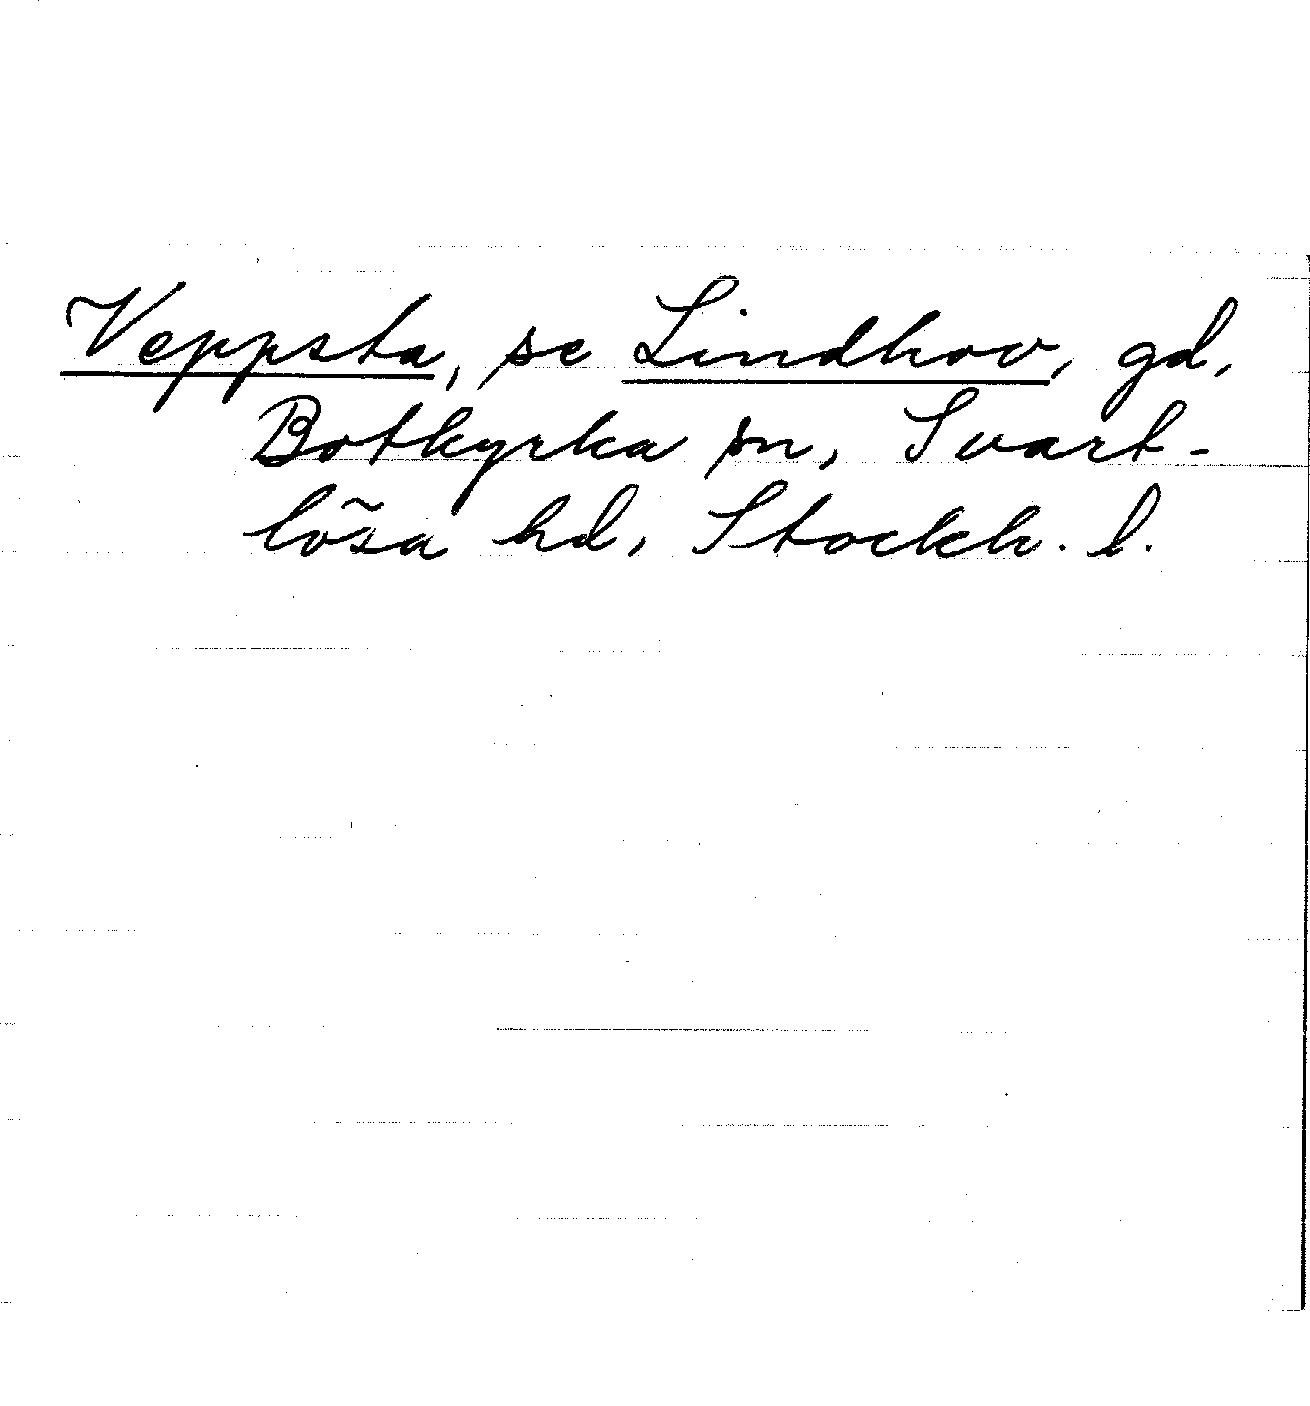 Veppsta, se Lindhov, gd,
Botkyrka sn, Svart-
lösa hd, Stockh. l.